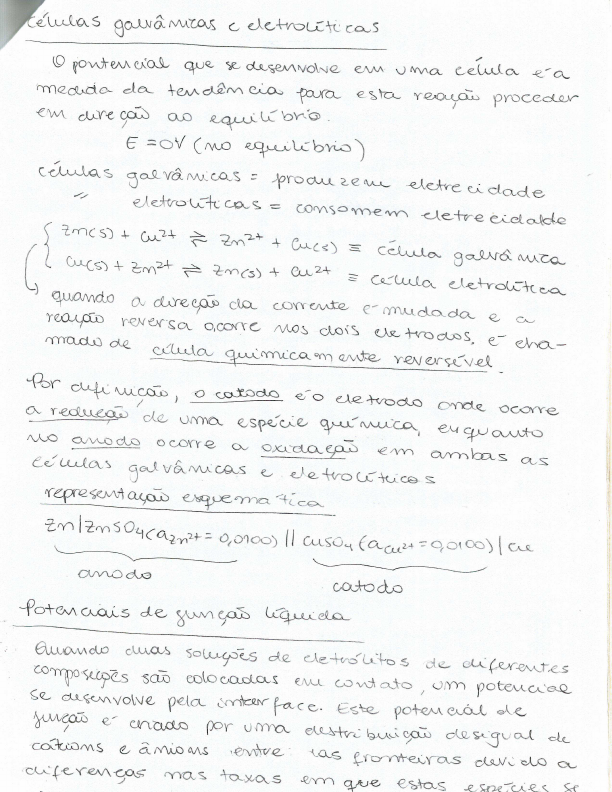 células galvânicas e eletrolíticas
O pontencial que se desenvolve em uma célula é a
medida da tendência para esta reação proceder
em direção ao equilíbrio.
E = 0V (no equilíbrio)
células galvânicas = produzem eletrecidade
〃 eletrolíticas = consomem eletrecidade
Zn(s) + Cu²⁺ ⇌ Zn²⁺ + Cu(s) ≡ célula galvânica
Cu(s) + Zn²⁺ ⇌ Zn(s) + Cu²⁺ ≡ célula eletrolítica
quando a direção da corrente é mudada e a
reação reversa ocorre nos dois eletrodos, é cha-
mado de célula quimicamente reversível.
Por difinição, o catodo é o eletrodo onde ocorre
a redução de uma espécie química, enquanto
no anodo ocorre a oxidação em ambas as
células galvânicas e eletrolíticas
representação esquemática
Zn/ZnSO₄(a Zn²⁺ = 0,0100) || CuSO₄ (a Cu²⁺ = 0,0100) | Cu
anodo
catodo
Potenciais de junção líquida
Quando duas soluções de eletrólitos de diferentes
composições são colocadas em contato, um potencial
se desenvolve pela interface. Este potencial de
junção é criado por uma destribuição desigual de
cátions e ânions entre as fronteiras devido a
diferenças nas taxas em que estas espécies se